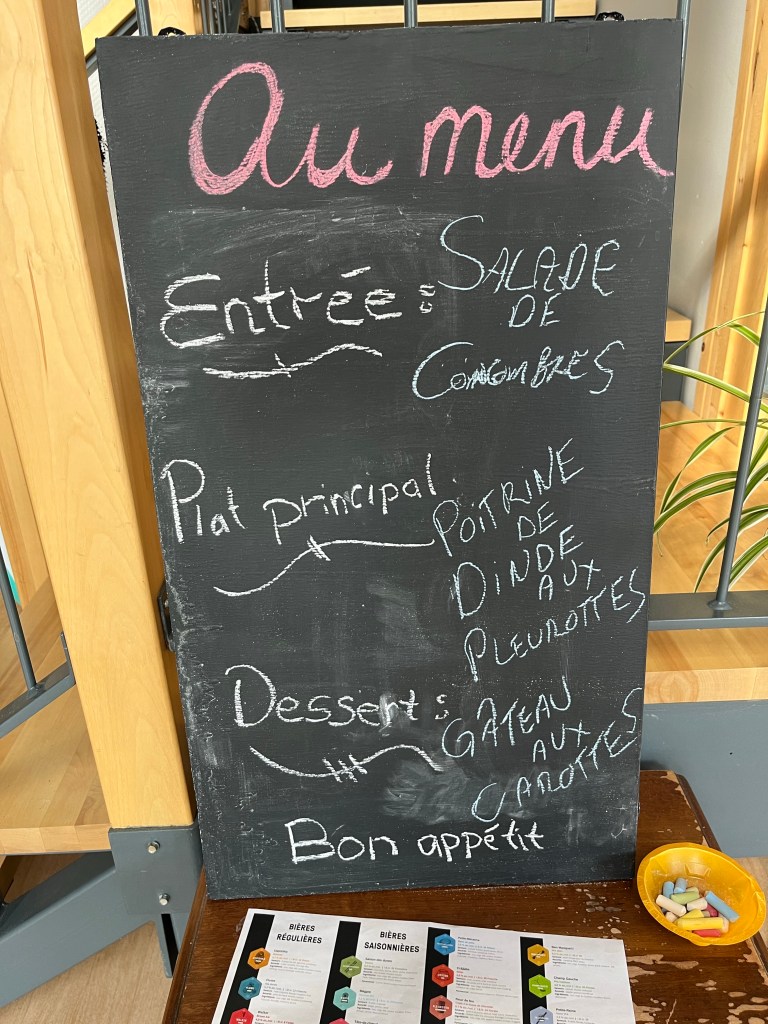 Au menu
Entrée :
SALADE
DE
CONCOMBRES
Plat principal
POITRINE
DE
DINDE
AUX
PLEUROTTES
Dessert :
GÂTEAU
AUX
CAROTTES
Bon appétit
BIÈRES
RÉGULIÈRES
BIÈRES
SAISONNIÈRES